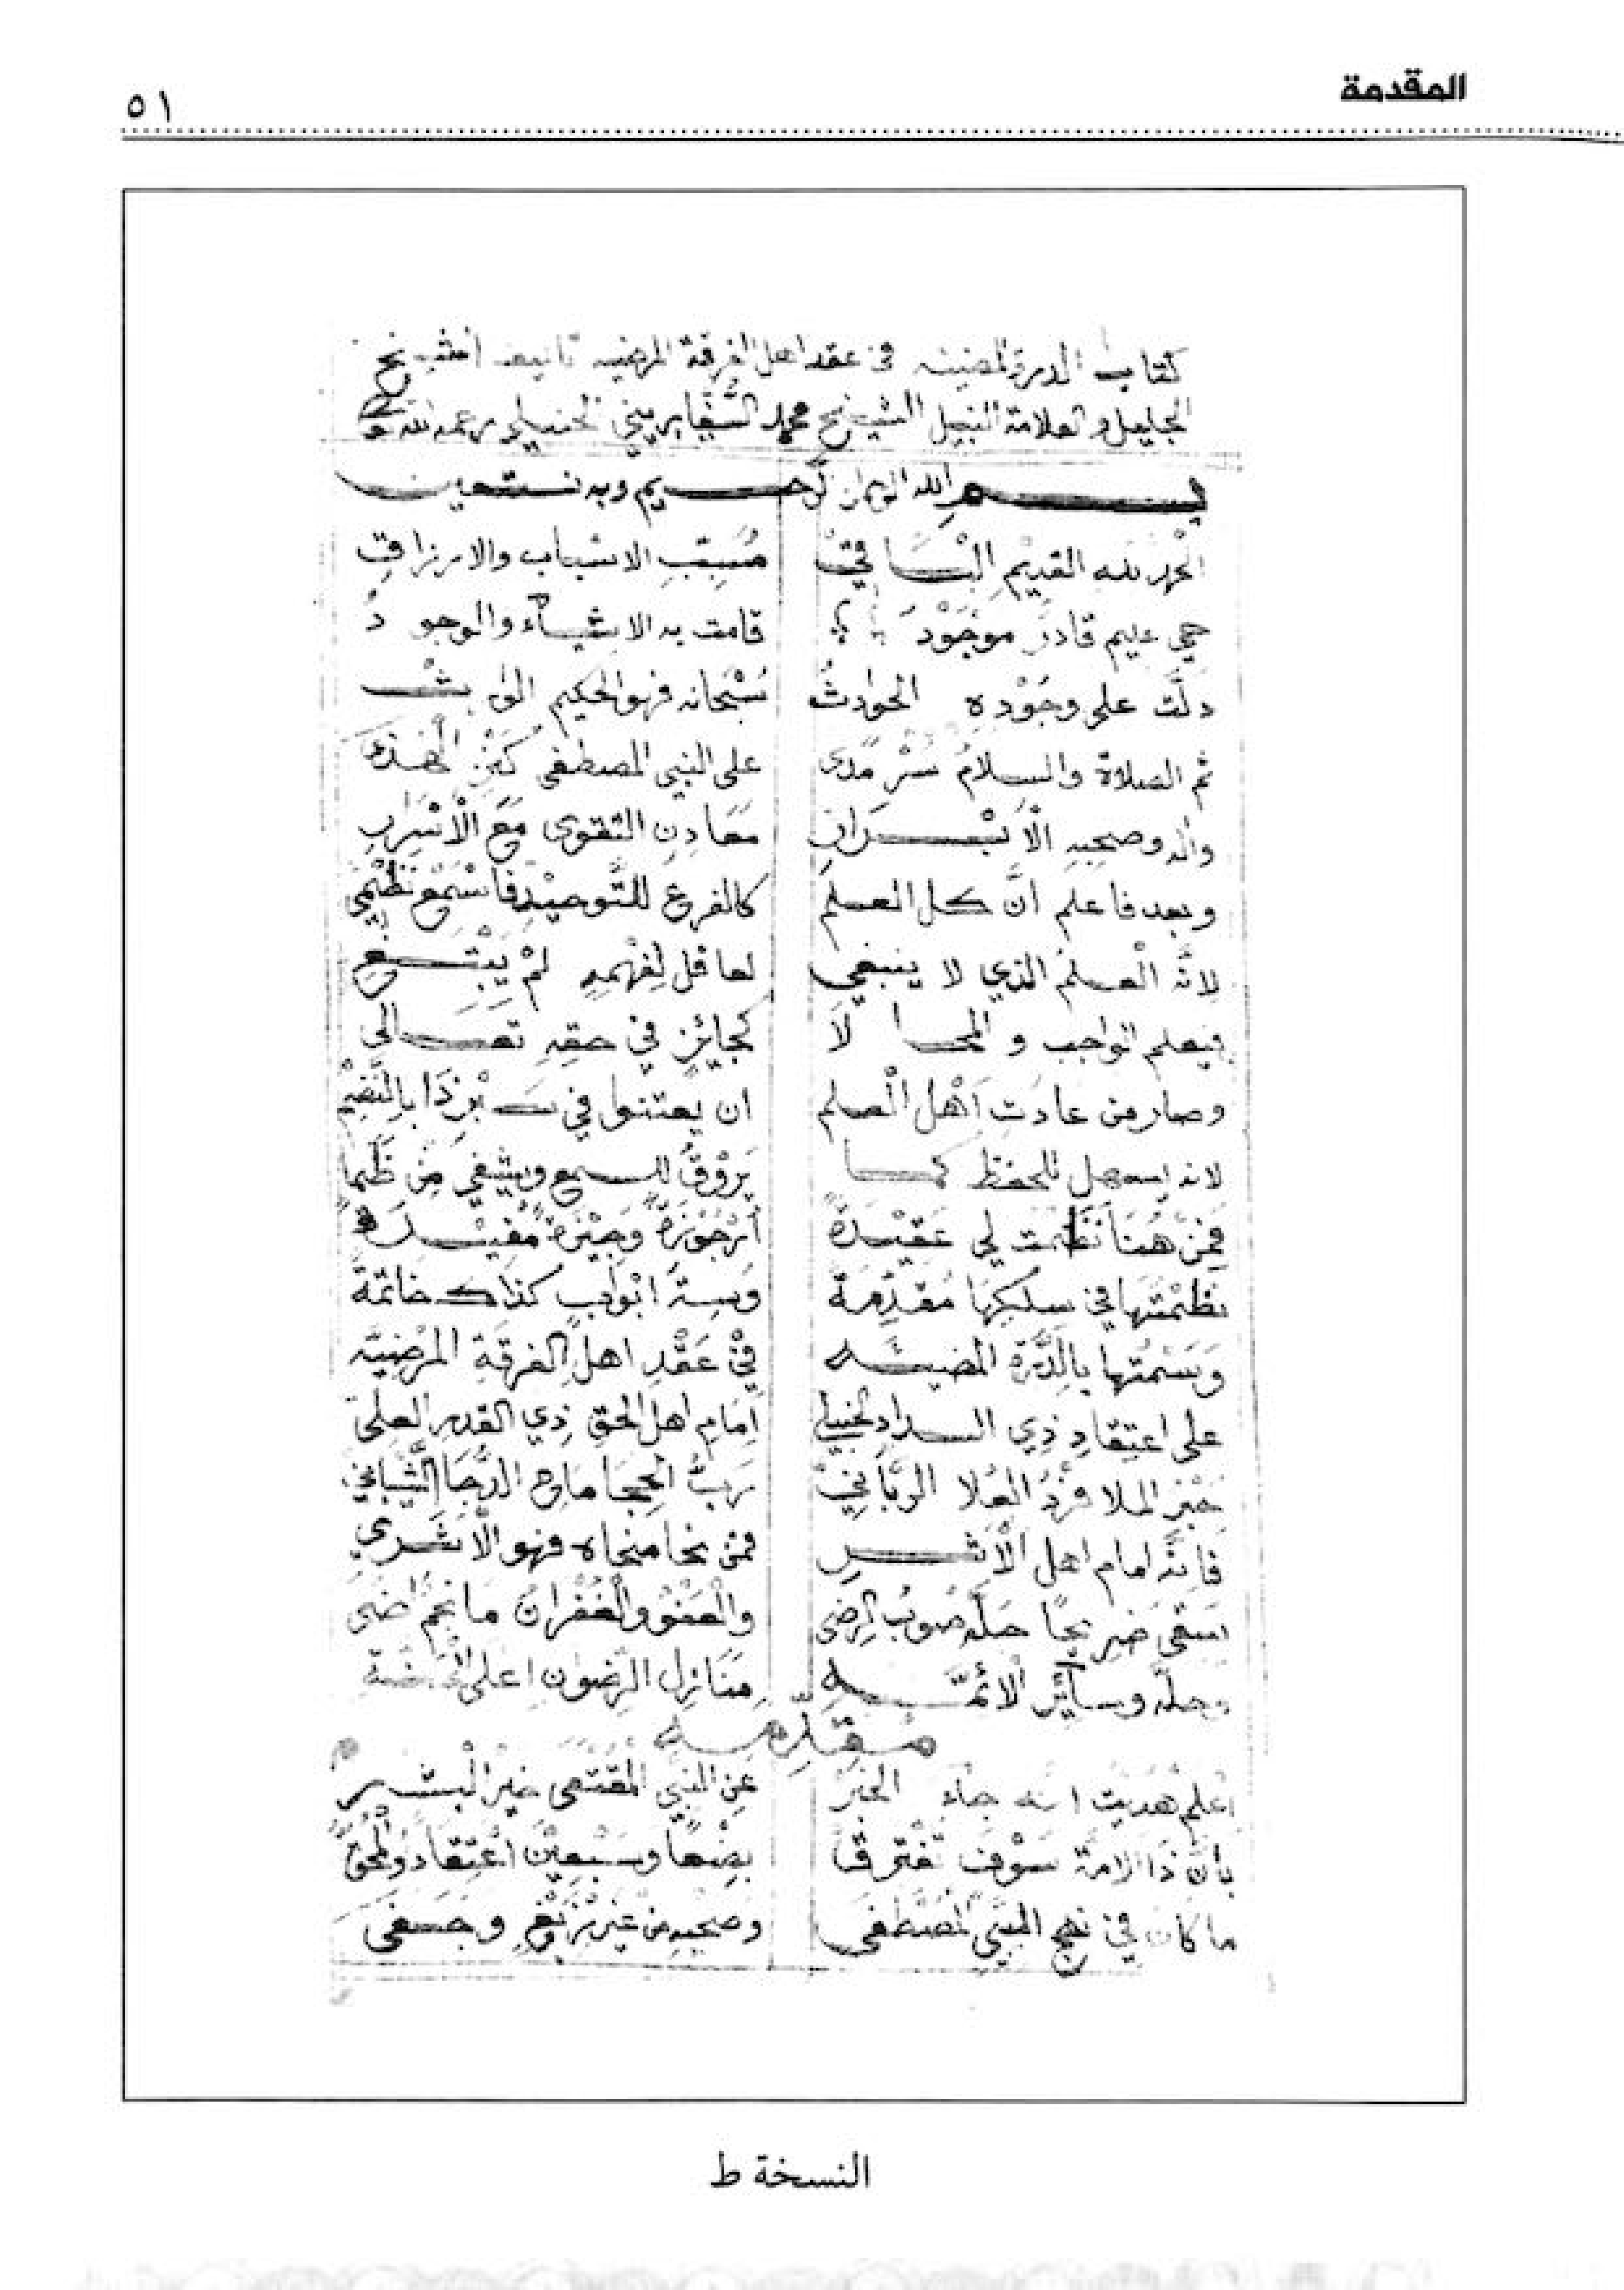 المقدمة
٥١
كتاب الدرة المضيه في عقد اهل الفرقة المرضيه تاليف الشيخ
الجليل والعلامة النبيل الشيخ محمد السَّفّاريني الحنبلي رحمه الله
بسم الله الرحمن الرحيم وبه نستعين
الحمد لله القديم الباقي مُسبِّبِ الاسباب والارزاق
حي عليم قادر موجود قامت به الاشياء والوجود
دلَّت على وجوده الحوادثُ سُبْحانه فهو الحكيم الوارث
ثم الصلاة والسلام سَرْمدَى على النبي المصطفى كَنْزِ الهُدَى
واله وصحبه الأبْرارِ مَعَادِنِ التقوى مَعَ الْاسْرارِ
وبعد فاعلم انَّ كل العلم كالفرع للتَّوحيْدِ فاسْمَعْ نَظْمِي
لانَّه الْعلمُ الذي لا ينبغي لعاقل لِفَهْمِهِ لمْ يَبْتَغِ
فيعلم الواجب والمحالَا كجائِزٍ في حقِهِ تعالى
وصار من عادت اَهْل الْعلم ان يعتنوا في سَبْرِ ذَا بالنَّظْمِ
لانه يسهل للحفظ كما يَرُوْقُ للسمع ويشفي مِنْ ظَما
فَمِنْ هُنَا نَظَمت لي عَقِيْدَةً اُرْجُوْزَةً وَجِيْزَةً مُفِيْدَةً
نظَمْتُها في سِلْكِهَا مُقَدِّمَة وَسِتة ابْوابٍ كذاك خاتمة
وَسَمْتُها بالدُّرَّة المضيه فِيْ عَقْدِ اهلِ الفرقةِ المرْضيّه
على اعتِقادِ ذِي السداد الحنبلي اِمَامِ اهل الحقِ ذِي القدرِ العلي
حَبْرِ الملا فَرْدُ العُلا الرّبّانيّْ رَبُّ الحِجَا ماحي الدُّجَا الشَّيْبَاني
فانَّه امام اهل الْأثَرِ فمن نحا منحاه فهو الْأثَري
سَقَى ضَرِيحًا حَلَّه صَوْبُ الرِضى والْعَفْوُ والْغُفْرانُ مَا نَجْمٌ اضَى
وحلَّه وسائِرَ الأئمّه مَنَازِلَ الرِّضوان اعلى الجنة
مقدّمه
اعلم هُديت انه جاء الخبرْ عَنِ النبي المقتفى خير الْبشر
بانَّ ذَا الامة سَوْف تفْترقَا بِضْعًا وسَبْعِيْن اعْتِقَادًا والمُحِقّ
ما كان في نهج النبي المصْطفى وصحبِه من غير زَيْغٍ وجَفى
النسخة ط